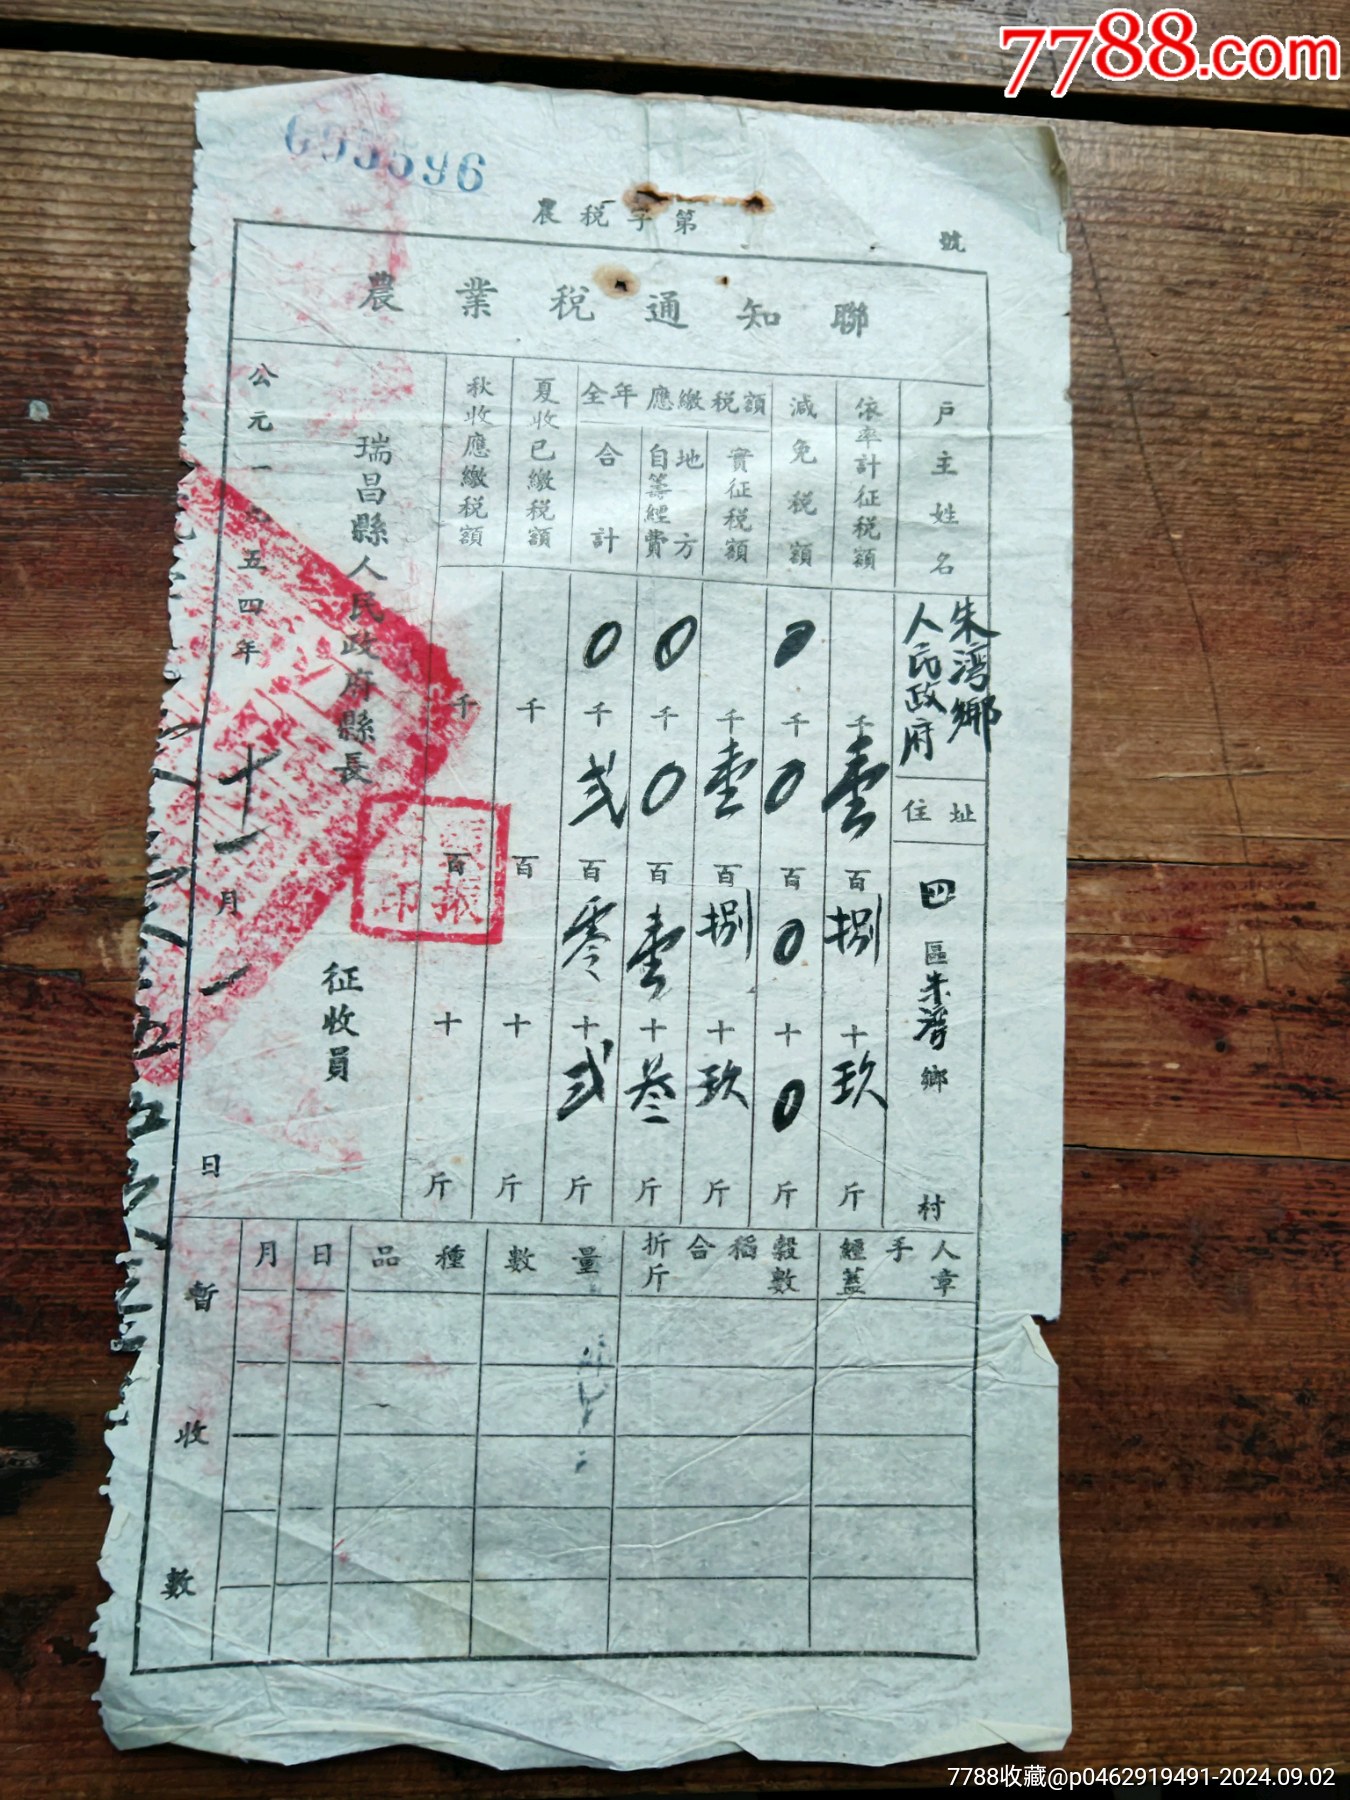 7788.com
農稅字第 號
農業稅通知聯
戶主姓名 朱湾鄉人民政府
住址 四區朱湾鄉 村
依率計征稅額 千壹百捌十玖斤
減免稅額 0千0百0十0斤
全年應繳稅額
實征稅額 千壹百捌十玖斤
地方自筹經費 0千0百壹十叁斤
合計 0千弍百零十弍斤
夏收已繳稅額 千百十斤
秋收應繳稅額 千百十斤
瑞昌縣人民政府縣長 征收員
公元一 五四年十一月一日
暫收數
月 日 品種 數量 折合稻穀斤數 經手人蓋章
7788收藏@p0462919491-2024.09.02